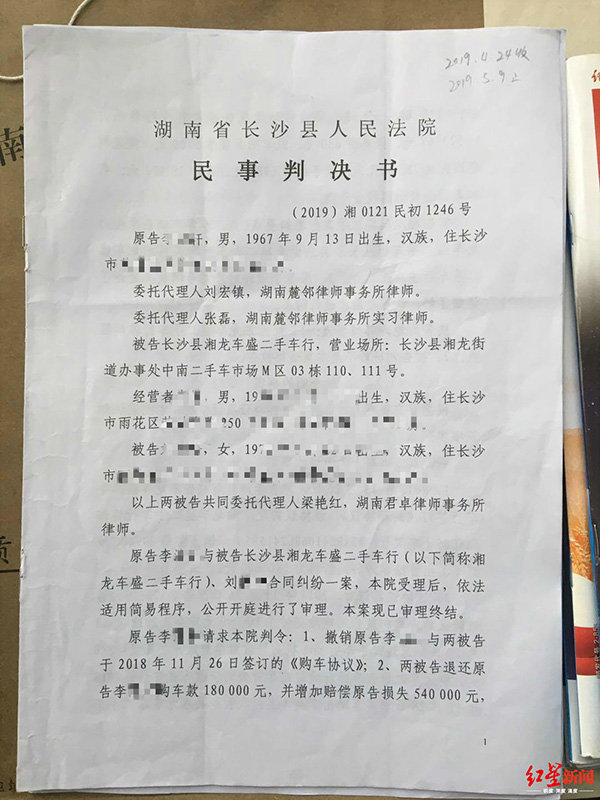 2019.4.24收
2019.5.9止
湖南省长沙县人民法院
民事判决书
（2019）湘0121民初1246号
原告李 轩，男，1967年9月13日出生，汉族，住长沙
市
委托代理人刘宏镇，湖南麓邻律师事务所律师。
委托代理人张磊，湖南麓邻律师事务所实习律师。
被告长沙县湘龙车盛二手车行，营业场所：长沙县湘龙街
道办事处中南二手车市场M区03栋110、111号。
经营者 ，男，19 出生，汉族，住长沙
市雨花区 350
被告 ，女，197 出生，汉族，住长沙
市
以上两被告共同委托代理人梁艳红，湖南君卓律师事务所
律师。
原告李 与被告长沙县湘龙车盛二手车行（以下简称湘
龙车盛二手车行）、刘 合同纠纷一案，本院受理后，依法
适用简易程序，公开开庭进行了审理。本案现已审理终结。
原告李 请求本院判令：1、撤销原告李 与两被告
于2018年11月26日签订的《购车协议》；2、两被告退还原
告李 购车款180000元，并增加赔偿原告损失540000元，
1
南
质
红星新闻
态度 深度 温度